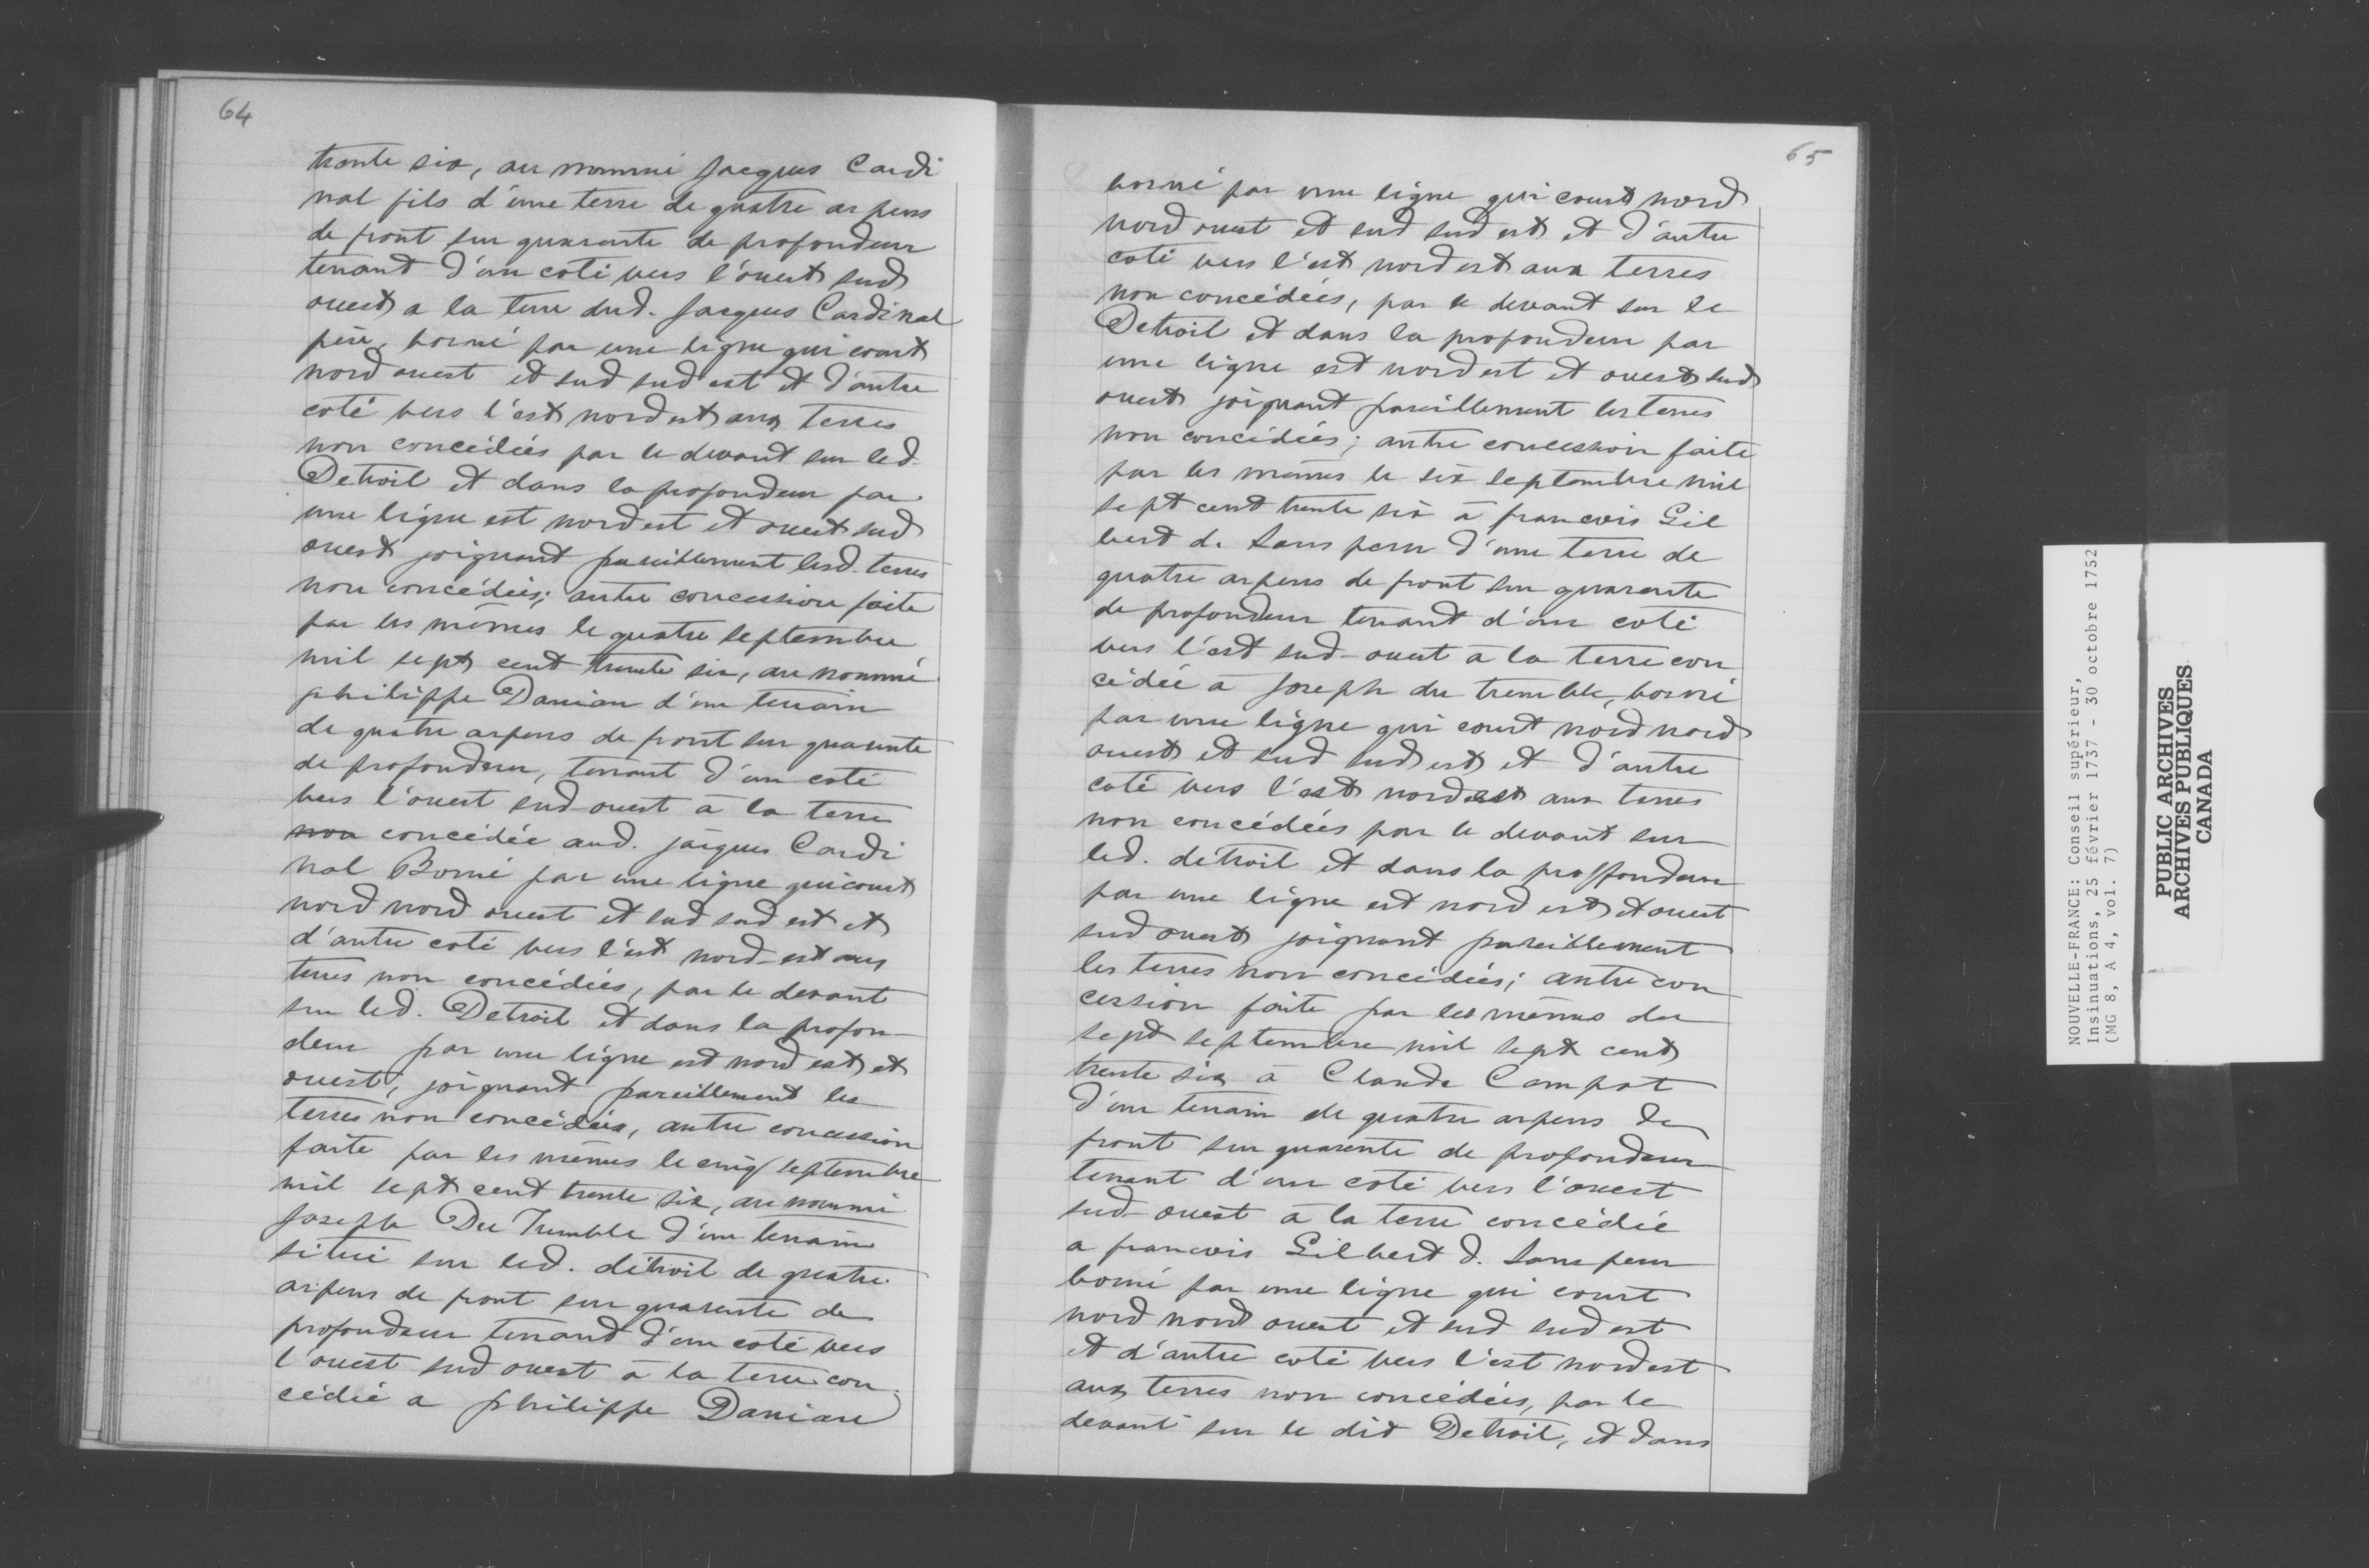 64
trente six, au nommé Jacques Cardi
nal fils d'une terre de quatre arpens
de front sur quarante de profondeur
tenant d'un coté vers l'ouest sud
ouest a la terre dud. Jacques Cardinal
père, borné par une ligne qui court
nord ouest et sud sud est et d'autre
coté vers l'est nord est aux terres
non concédées par le devant sur led.
Detroit et dans la profondeur par
une ligne est nord est et ouest sud
ouest joignant pareillement lesd. terres
non concédées; autre concession faite
par les mêmes le quatre septembre
mil sept cent trente six, au nommé
philippe Daniau d'un terrain
de quatre arpens de front sur quarante
de profondeur, tenant d'un coté
vers l'ouest sud-ouest à la terre
non concédée aud. jacques Cardi
nal Borné par une ligne qui court
nord nord ouest et sud sud est et
d'autre coté vers l'est nord-est aux
terres non concédées, par le devant
sur led. Detroit et dans la profon
deur par une ligne est nord est et
ouest; joignant pareillement les
terres non concédées, autre concession
faite par les mêmes le cinq septembre
mil sept cent trente six, au nommé
Joseph Du Tremble d'un terrain
situé sur led. détroit de quatre
arpens de front sur quarante de
profondeur tenant d'un coté vers
l'ouest sud ouest à la terre con
cédée a philippe Daniau
65
borné par une ligne qui court nord
nord ouest et sud sud est et d'autre
coté vers l'est nord est aux terres
non concédées, par le devant sur le
Detroit et dans la profondeur par
une ligne est nord est et ouest sud
ouest joignant pareillement les terres
non concédées; autre concession faite
par les mêmes le six septembre mil
sept cent trente six à francois Gil
bert d. Sans peur d'une terre de
quatre arpens de front sur quarante
de profondeur tenant d'un coté
vers l'est sud-ouest à la terre con
cédée a Joseph du tremble, borné
par une ligne qui court nord nord
ouest et sud sud est et d'autre
coté vers l'est nord est aux terres
non concédées par le devant sur
led. détroit et dans la proffondeur
par une ligne est nord est et ouest
sud ouest joignant pareillement
les terres non concédées; autre con
cession faite par les mêmes du
sept septembre mil sept cent
trente six à Claude Campot
d'un terrain de quatre arpens de
front sur quarante de profondeur
tenant d'un coté vers l'ouest
sud-ouest à la terre concédée
a francois Gilbert d. Sans peur
borné par une ligne qui court
nord nord ouest et sud sud est
et d'autre coté vers l'est nord est
aux terres non concédées, par le
devant sur le dit Detroit, et dans
NOUVELLE-FRANCE: Conseil supérieur,
Insinuations, 25 février 1737 - 30 octobre 1752
(MG 8, A 4, vol. 7)
PUBLIC ARCHIVES
ARCHIVES PUBLIQUES
CANADA